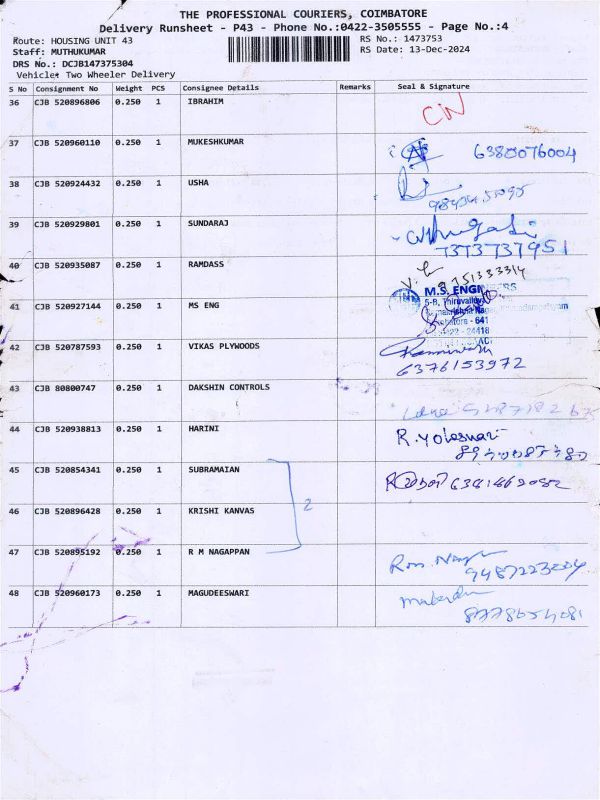 THE PROFESSIONAL COURIERS, COIMBATORE
Delivery Runsheet - P43 - Phone No.:0422-3505555 - Page No.:4
Route: HOUSING UNIT 43 RS No.: 1473753
Staff: MUTHUKUMAR RS Date: 13-Dec-2024
DRS No.: DCJB147375304
Vehicle: Two Wheeler Delivery
S No Consignment No Weight PCS Consignee Details Remarks Seal & Signature
36 CJB 520896806 0.250 1 IBRAHIM
37 CJB 520960110 0.250 1 MUKESHKUMAR 6380076004
38 CJB 520924432 0.250 1 USHA
39 CJB 520929801 0.250 1 SUNDARAJ
7373737951
40 CJB 520935087 0.250 1 RAMDASS
41 CJB 520927144 0.250 1 MS ENG M.S. ENGI
5-B, Thiruvallu
42 CJB 520787593 0.250 1 VIKAS PLYWOODS
6376153972
43 CJB 80800747 0.250 1 DAKSHIN CONTROLS
44 CJB 520938813 0.250 1 HARINI
45 CJB 520854341 0.250 1 SUBRAMAIAN
46 CJB 520896428 0.250 1 KRISHI KANVAS 2
47 CJB 520895192 0.250 1 R M NAGAPPAN
48 CJB 520960173 0.250 1 MAGUDEESWARI